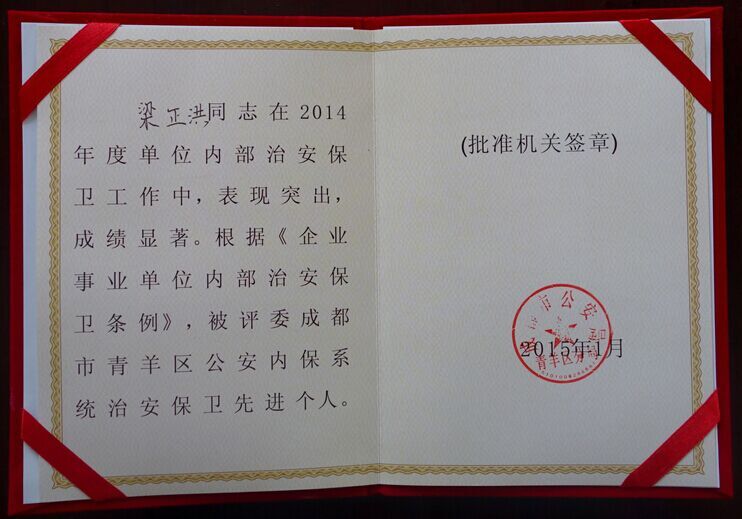 梁正洪同志在2014
年度单位内部治安保
卫工作中，表现突出，
成绩显著。根据《企业
事业单位内部治安保
卫条例》，被评委成都
市青羊区公安内保系
统治安保卫先进个人。
(批准机关签章)
市公安局
2015年1月
青羊区分